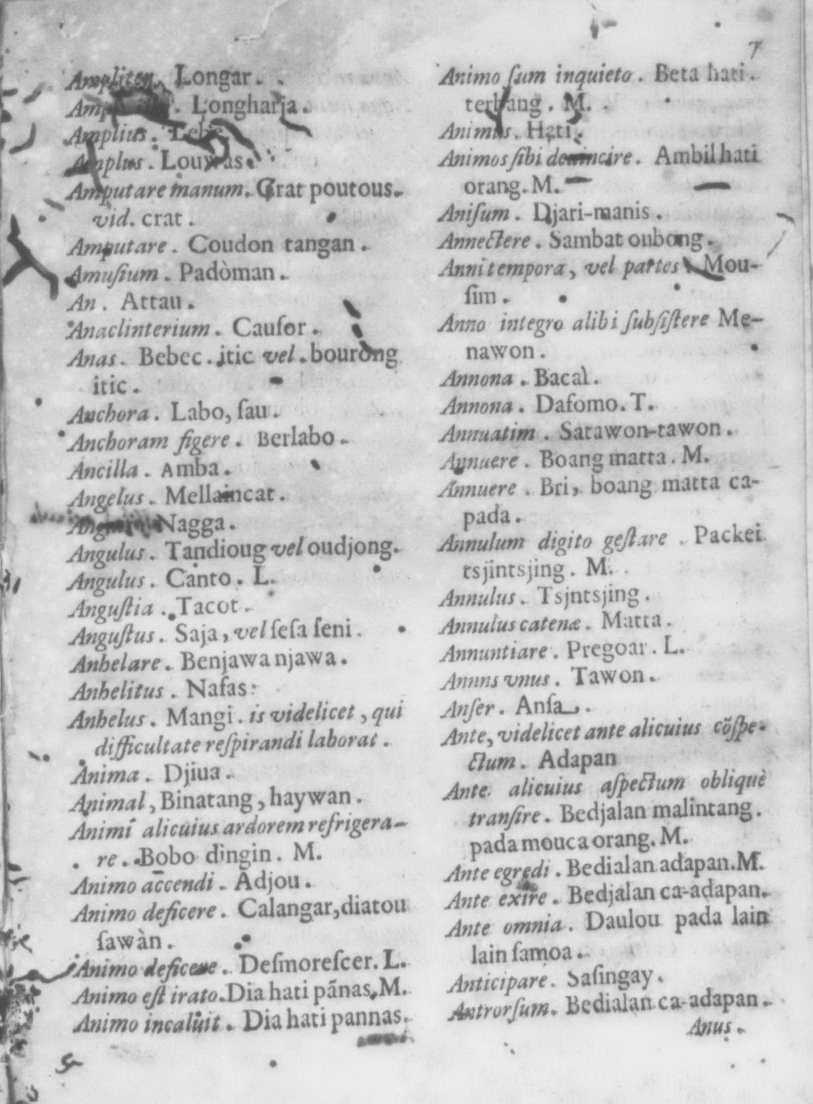 7
Ampliter. Longar.
Longharja.
Amplius. Lebe
Amplus. Louwas.
Amputare manum. Crat poutous.
vid. crat.
Amputare. Coudon tangan.
Amusium. Padòman.
An. Attau.
Anaclinterium. Causor.
Anas. Bebec. itic vel. bourong
itic.
Anchora. Labo, sau.
Anchoram figere. Berlabo.
Ancilla. Amba.
Angelus. Mellaincat.
Nagga.
Angulus. Tandioug vel oudjong.
Angulus. Canto. L.
Angustia. Tacot.
Angustus. Saja, vel sesa seni.
Anhelare. Benjawa njawa.
Anhelitus. Nafas.
Anhelus. Mangi. is videlicet, qui
difficultate respirandi laborat.
Anima. Djiua.
Animal, Binatang, haywan.
Animi alicuius ardorem refrigera-
re. Bobo dingin. M.
Animo accendi. Adjou.
Animo deficere. Calangar, diatou
sawàn.
Animo deficere. Desmorescer. L.
Animo est irato. Dia hati pãnas, M.
Animo incaluit. Dia hati pannas.
Animo sum inquieto. Beta hati.
terbang. M.
Animus. Hati.
Animos sibi devincire. Ambil hati
orang. M.
Anisum. Djari-manis.
Annectere. Sambat oubong.
Anni tempora, vel partes. Mou-
sim.
Anno integro alibi subsistere Me-
nawon.
Annona. Bacal.
Annona. Dafomo. T.
Annuatim. Satawon-tawon.
Annuere. Boang matta. M.
Annuere. Bri, boang matta ca-
pada.
Annulum digito gestare. Packei
tsjintsjing. M.
Annulus. Tsjntsjing.
Annulus catenæ. Matta.
Annuntiare. Pregoar. L.
Annns vnus. Tawon.
Anser. Ansa.
Ante, videlicet ante alicuius cõspe-
ctum. Adapan
Ante alicuius aspectum obliquè
transire. Bedjalan malintang.
pada mouca orang. M.
Ante egredi. Bedialan adapan. M.
Ante exire. Bedjalan ca-adapan.
Ante omnia. Daulou pada lain
lain samoa.
Anticipare. Sasingay.
Antrorsum. Bedialan ca-adapan.
Anus.